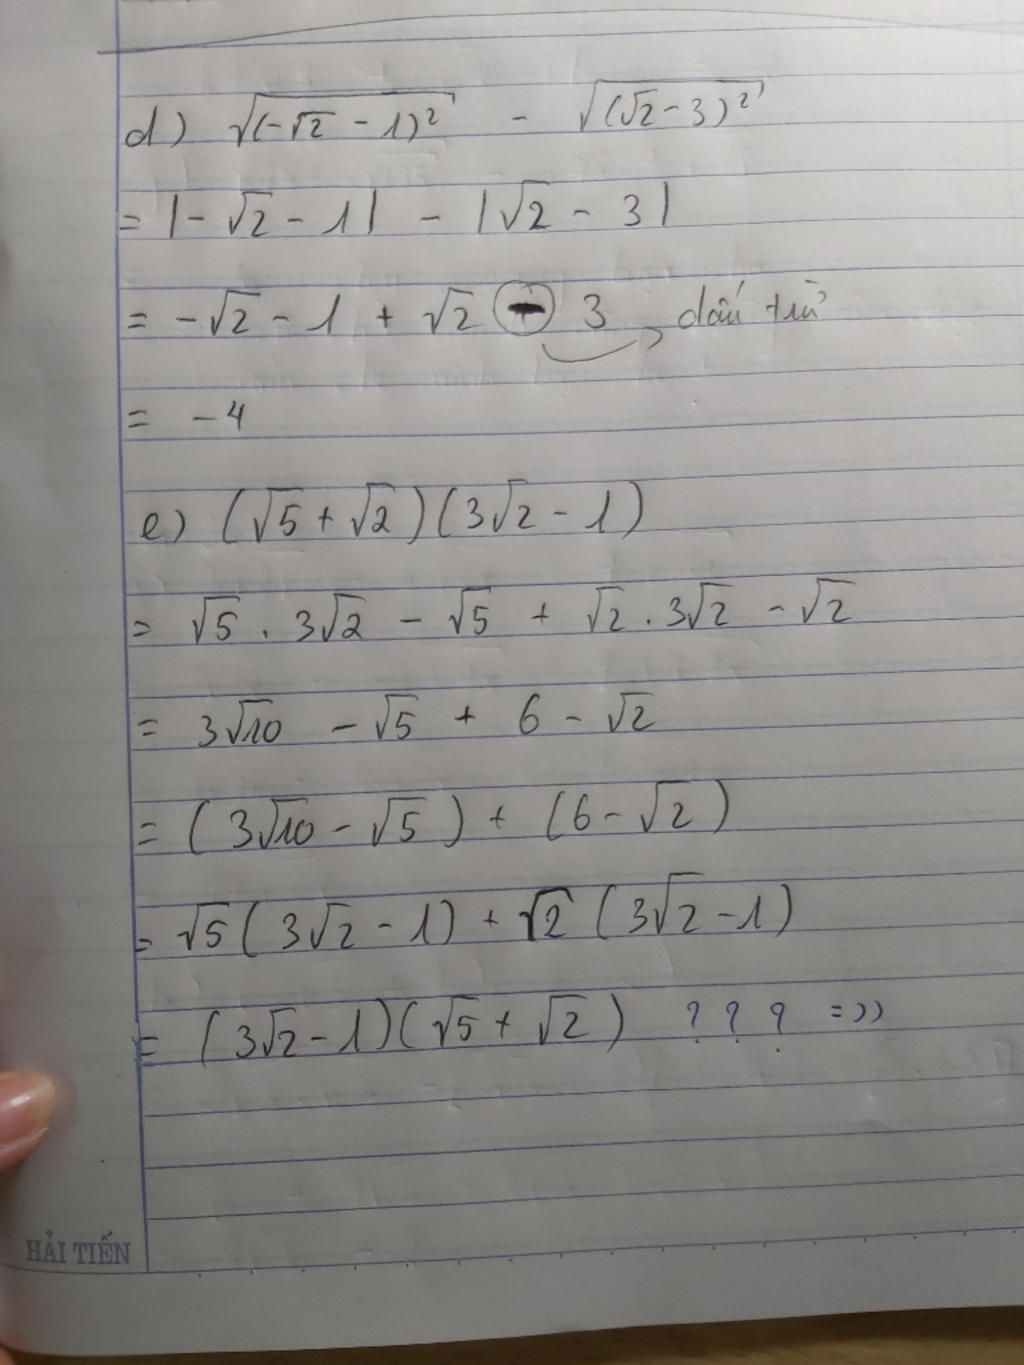 d) √(-√2 - 1)² - √(√2 - 3)²
= |-√2 - 1| - |√2 - 3|
= -√2 - 1 + √2 - 3 dấu trừ
= -4
e) (√5 + √2)(3√2 - 1)
= √5 . 3√2 - √5 + √2 . 3√2 - √2
= 3√10 - √5 + 6 - √2
= (3√10 - √5) + (6 - √2)
= √5(3√2 - 1) + √2(3√2 - 1)
= (3√2 - 1)(√5 + √2) ? ? ? =))
HẢI TIẾN